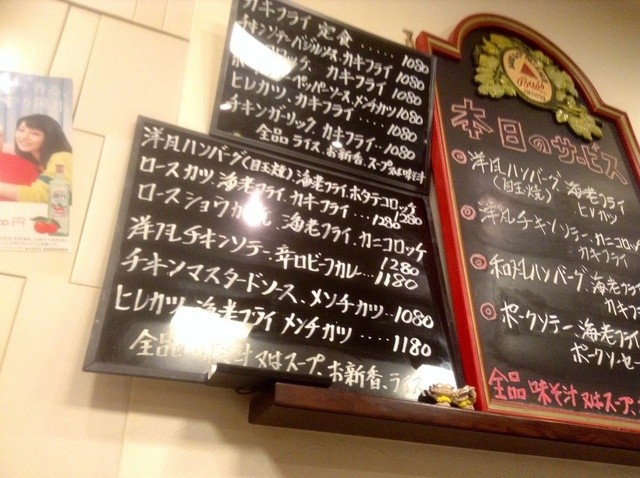 カキフライ 定食 ..... 1080
チキンソテーバジルソース、カキフライ 1080
コロッケ、カキフライ 1080
ペッパーソース、メンチカツ 1080
ヒレカツ、カキフライ 1080
チキンガーリック、カキフライ…1080
全品 ライス、お新香、スープ又は味噌汁
洋風ハンバーグ(目玉焼)、海老フライ、ホタテコロッケ 1280
ロースカツ、海老フライ、カキフライ…1280
ロースショウガ焼、海老フライ、カニコロッケ 1280
洋風チキンソテー、辛口ビーフカレー…1180
チキンマスタードソース、メンチカツ…1080
ヒレカツ、海老フライ メンチカツ ....1180
全品 味噌汁 又はスープ、お新香、ライス
Bass
本日のサービス
洋風ハンバーグ、海老フライ
(目玉焼) ヒレカツ
洋風チキンソテー、カニコロッケ
カキフライ
和風ハンバーグ、海老フライ
カキフ
ポークソテー、海老フライ
ポークソーセー
全品 味そ汁 又はスープ、